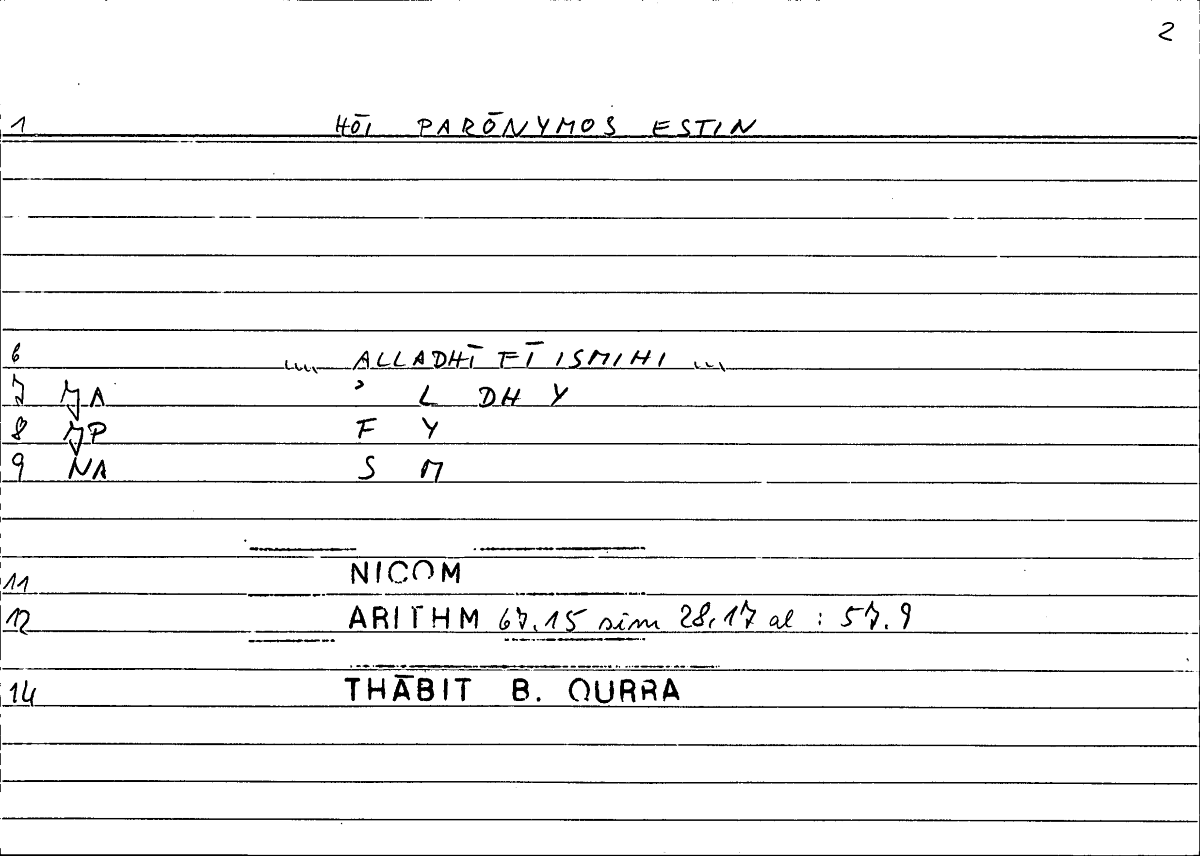 2
1 HŌI PARŌNYMOS ESTIN
6 ... ALLADHĪ FĪ ISMIHI ...
7 JA ʾ L DH Y
8 JP F Y
9 NA S M
11 NICOM
12 ARITHM 67,15 sim 28,17 al : 57.9
14 THĀBIT B. QURRA